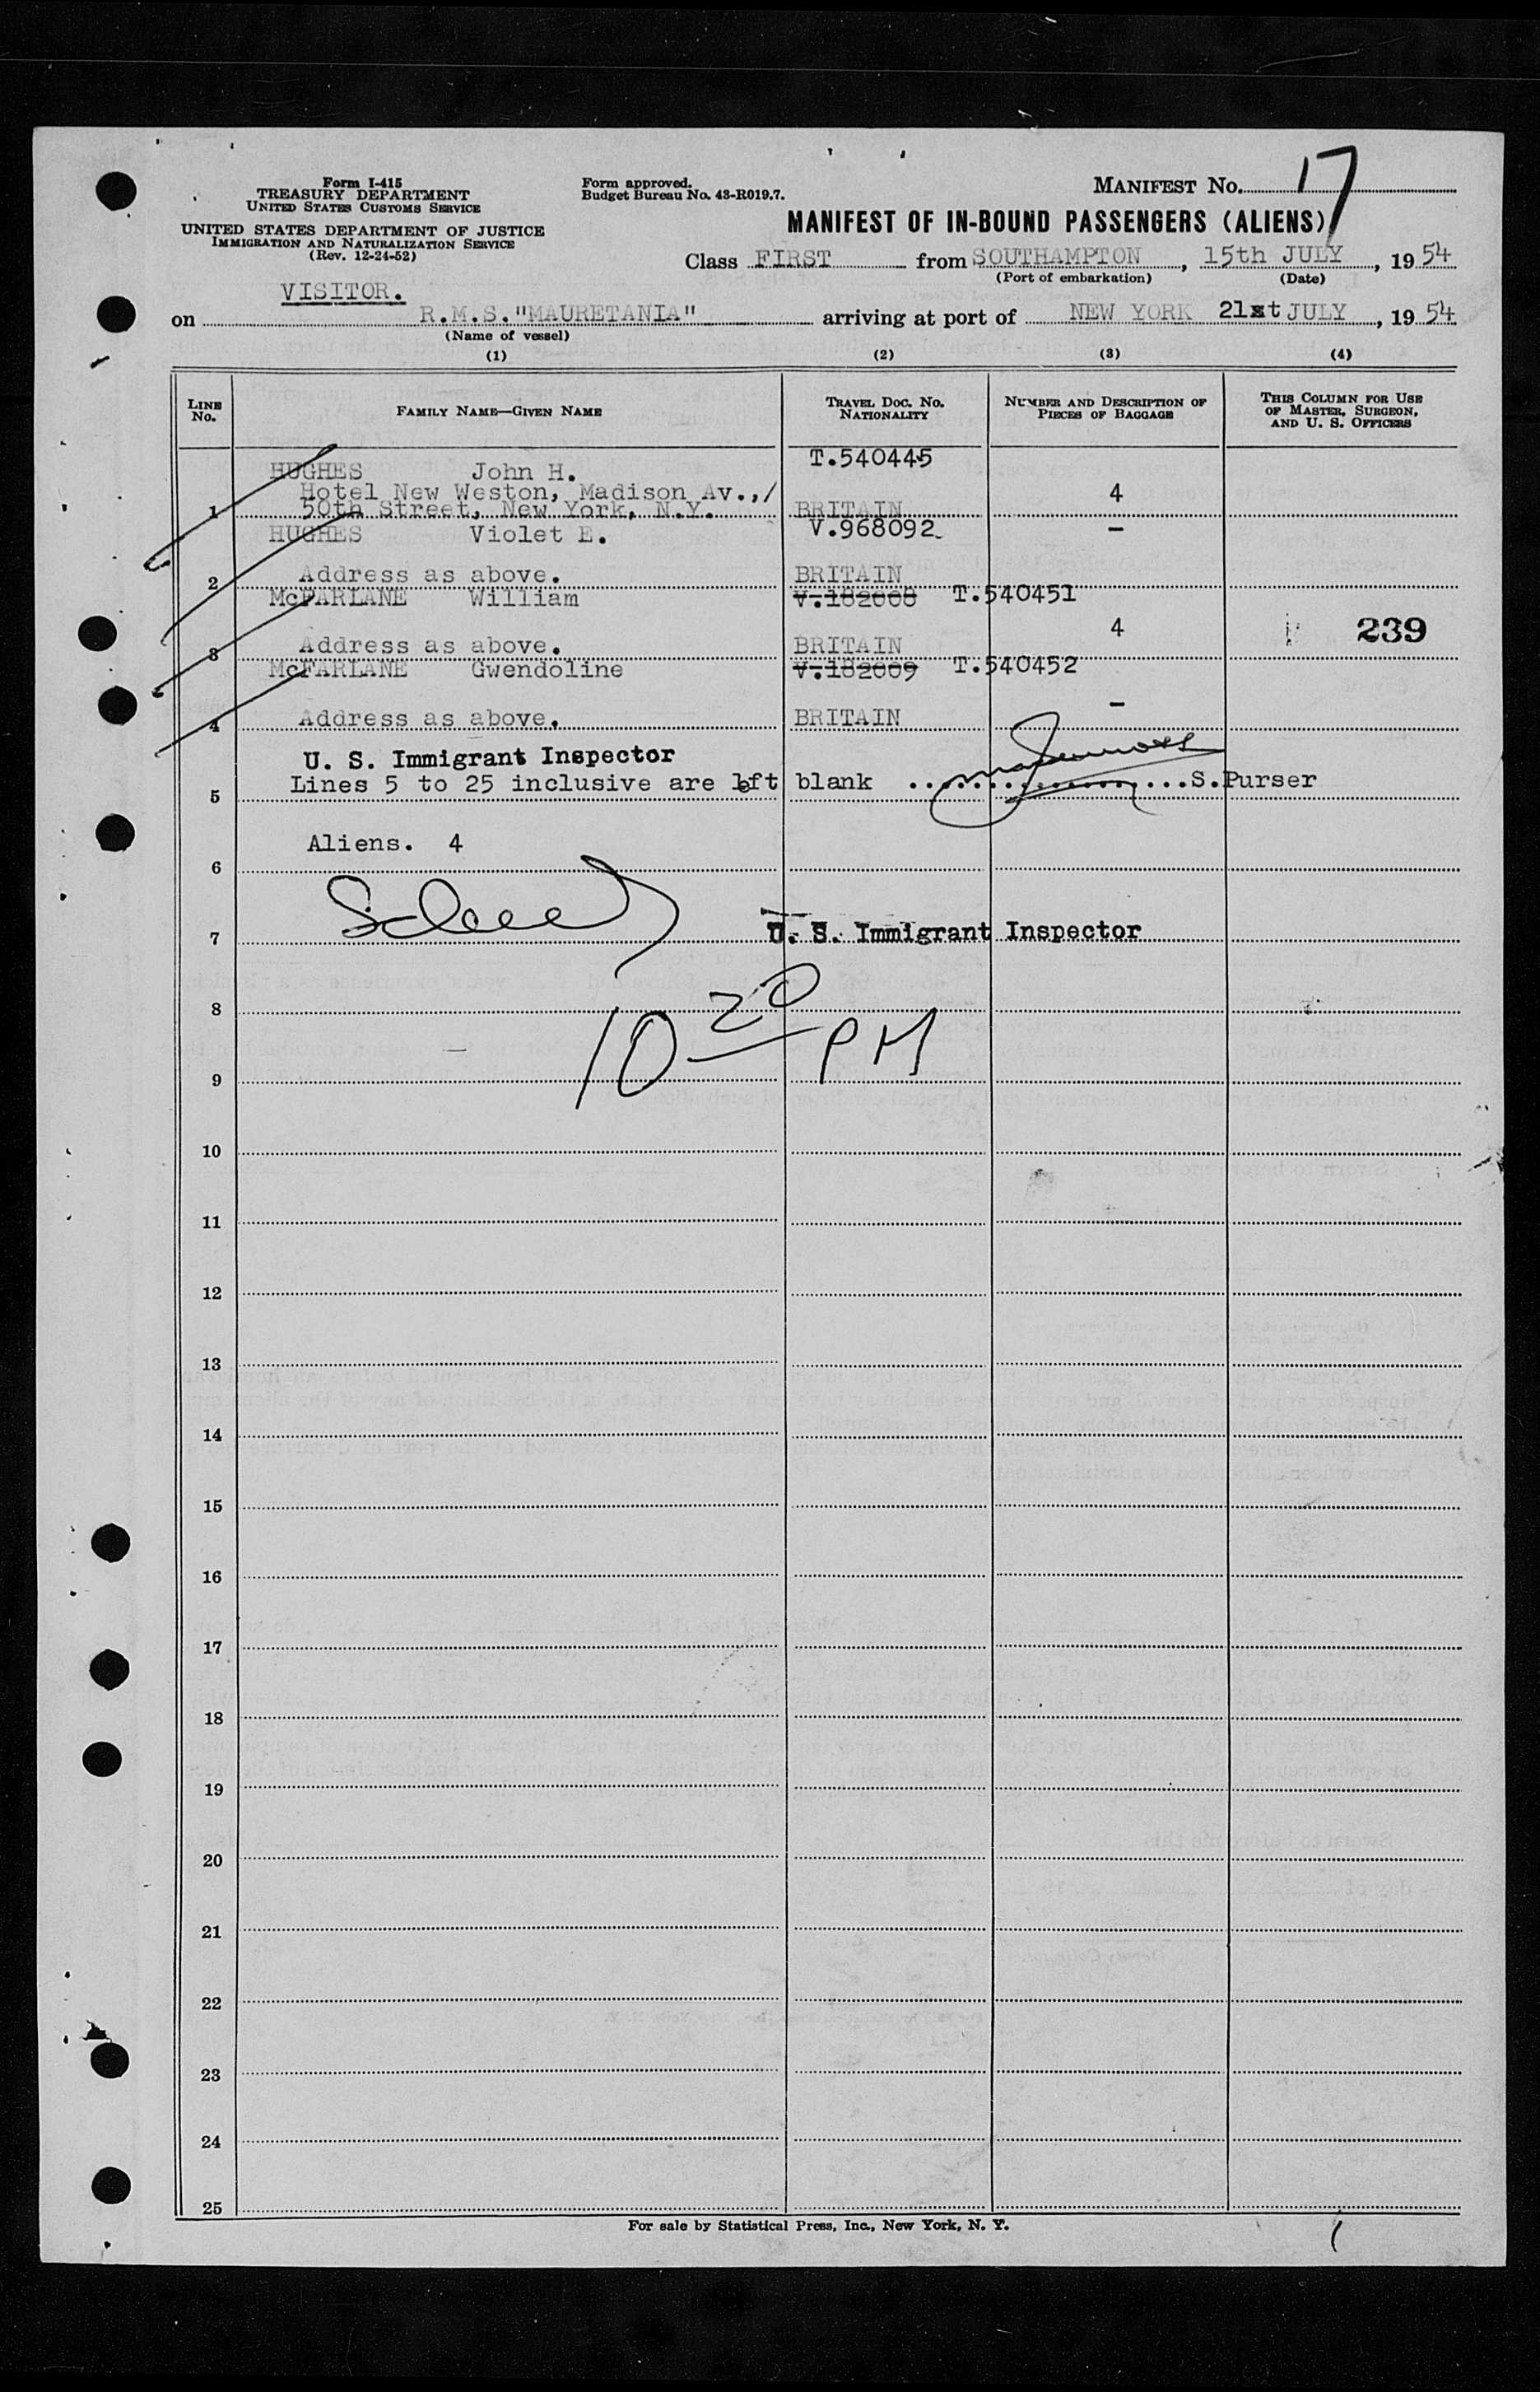 Form I-415
TREASURY DEPARTMENT
UNITED STATES CUSTOMS SERVICE
UNITED STATES DEPARTMENT OF JUSTICE
IMMIGRATION AND NATURALIZATION SERVICE
(Rev. 12-24-52)
Form approved.
Budget Bureau No. 43-R019.7.
MANIFEST NO. 17
MANIFEST OF IN-BOUND PASSENGERS (ALIENS)
Class FIRST from SOUTHAMPTON, 15th JULY, 1954
(Port of embarkation) (Date)
VISITOR.
on R.M.S."MAURETANIA" arriving at port of NEW YORK 21st JULY, 1954
(Name of vessel)
(1) (2) (3) (4)
LINE No. FAMILY NAME—GIVEN NAME TRAVEL DOC. NO. NATIONALITY NUMBER AND DESCRIPTION OF PIECES OF BAGGAGE THIS COLUMN FOR USE OF MASTER, SURGEON, AND U. S. OFFICERS
HUGHES John H. T.540445
Hotel New Weston, Madison Av.,/ 4
1 50th Street, New York, N.Y. BRITAIN
HUGHES Violet E. V.968092 -
2 Address as above. BRITAIN
McFARLANE William V.182008 T.540451
4 239
3 Address as above. BRITAIN
McFARLANE Gwendoline V.182009 T.540452
4 Address as above. BRITAIN -
U. S. Immigrant Inspector
5 Lines 5 to 25 inclusive are left blank ..................S.Purser
Aliens. 4
6
7 U. S. Immigrant Inspector
8
10 20 PM
9
10
11
12
13
14
15
16
17
18
19
20
21
22
23
24
25
For sale by Statistical Press, Inc., New York, N. Y.